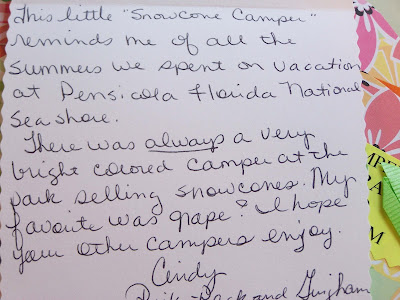 This little "Snowcone Camper"
reminds me of all the
summers we spent on vacation
at Pensicola Florida National
Seashore.
There was always a very
bright colored camper at the
park selling snowcones. My
favorite was grape! I hope
your other campers enjoy.
Cindy
Rick-Rack and Gingham